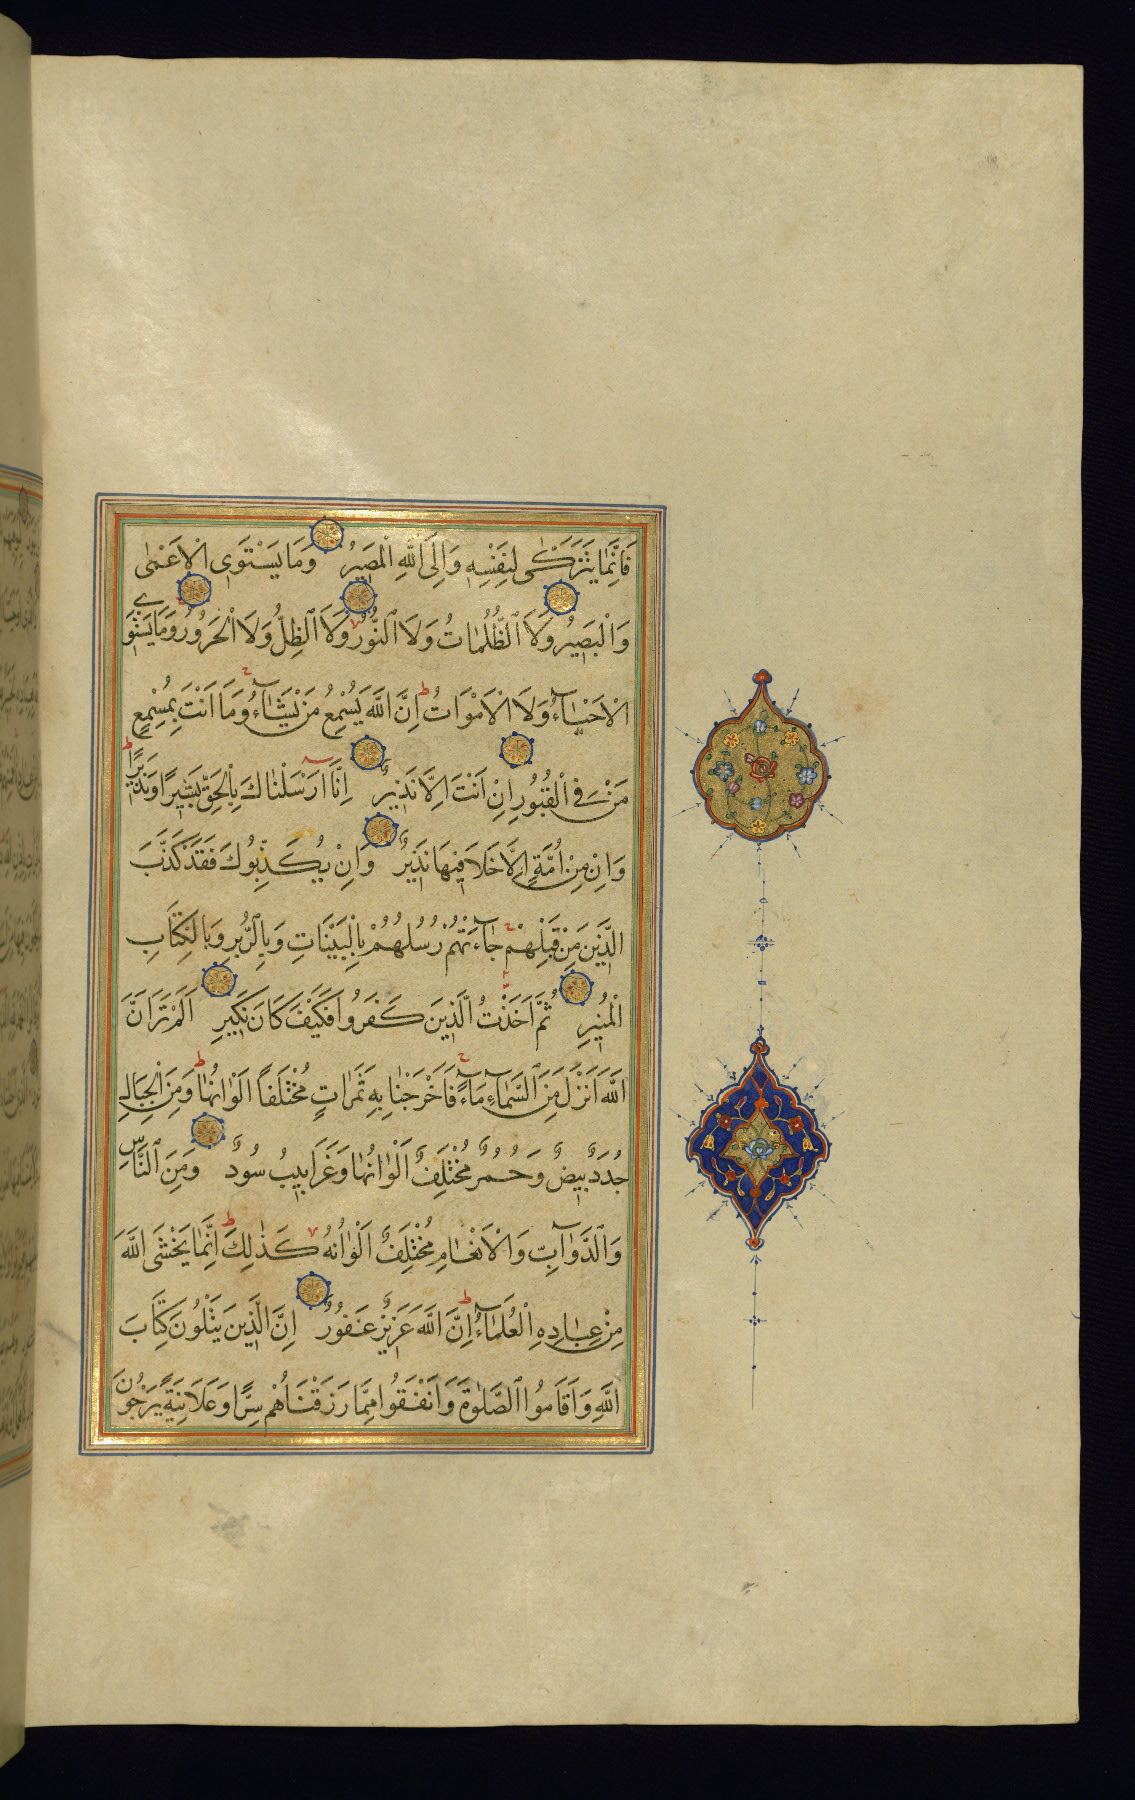 فَاِنَّمَا يَتَزَكّٰى لِنَفْسِهٖ وَاِلَى اللّٰهِ الْمَصٖيرُ وَمَا يَسْتَوِى الْاَعْمٰى
وَالْبَصٖيرُ وَلَا الظُّلُمَاتُ وَلَا النُّورُ وَلَا الظِّلُّ وَلَا الْحَرُورُ وَمَا يَسْتَوِى
الْاَحْيَآءُ وَلَا الْاَمْوَاتُ اِنَّ اللّٰهَ يُسْمِعُ مَنْ يَشَآءُ وَمَا اَنْتَ بِمُسْمِعٍ
مَنْ فِى الْقُبُورِ اِنْ اَنْتَ اِلَّا نَذٖيرٌ اِنَّا اَرْسَلْنَاكَ بِالْحَقِّ بَشٖيرًا وَنَذٖيرًا
وَاِنْ مِنْ اُمَّةٍ اِلَّا خَلَا فٖيهَا نَذٖيرٌ وَاِنْ يُكَذِّبُوكَ فَقَدْ كَذَّبَ
الَّذٖينَ مِنْ قَبْلِهِمْ جَآءَتْهُمْ رُسُلُهُمْ بِالْبَيِّنَاتِ وَبِالزُّبُرِ وَبِالْكِتَابِ
الْمُنٖيرِ ثُمَّ اَخَذْتُ الَّذٖينَ كَفَرُوا فَكَيْفَ كَانَ نَكٖيرِ اَلَمْ تَرَ اَنَّ
اللّٰهَ اَنْزَلَ مِنَ السَّمَآءِ مَآءً فَاَخْرَجْنَا بِهٖ ثَمَرَاتٍ مُخْتَلِفًا اَلْوَانُهَا وَمِنَ الْجِبَالِ
جُدَدٌ بٖيضٌ وَحُمْرٌ مُخْتَلِفٌ اَلْوَانُهَا وَغَرَابٖيبُ سُودٌ وَمِنَ النَّاسِ
وَالدَّوَآبِّ وَالْاَنْعَامِ مُخْتَلِفٌ اَلْوَانُهُ كَذٰلِكَ اِنَّمَا يَخْشَى اللّٰهَ
مِنْ عِبَادِهِ الْعُلَمَآءُ اِنَّ اللّٰهَ عَزٖيزٌ غَفُورٌ اِنَّ الَّذٖينَ يَتْلُونَ كِتَابَ
اللّٰهِ وَاَقَامُوا الصَّلٰوةَ وَاَنْفَقُوا مِمَّا رَزَقْنَاهُمْ سِرًّا وَعَلَانِيَةً يَرْجُونَ